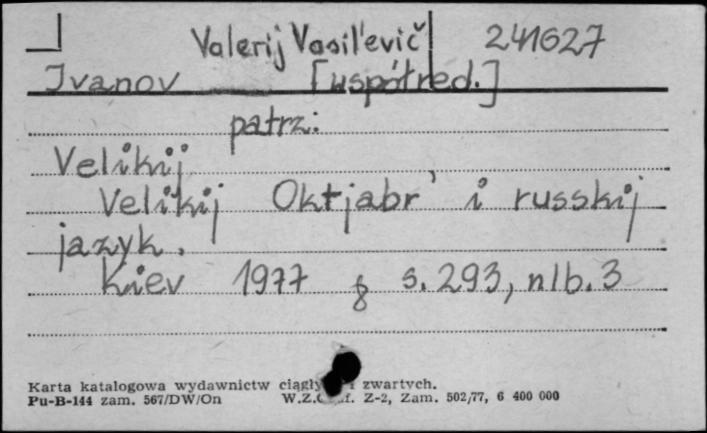 Valerij Vasil'evič 241627
Ivanov [współred.]
patrz:
Velikij
Velikij Oktjabr' i russkij
jazyk.
Kiev 1977 8 s. 293, nlb. 3
Karta katalogowa wydawnictw i zwartych.
Pu-B-144 zam. 567/DW/On W.Z. Z-2, Zam. 502/77, 6 400 000